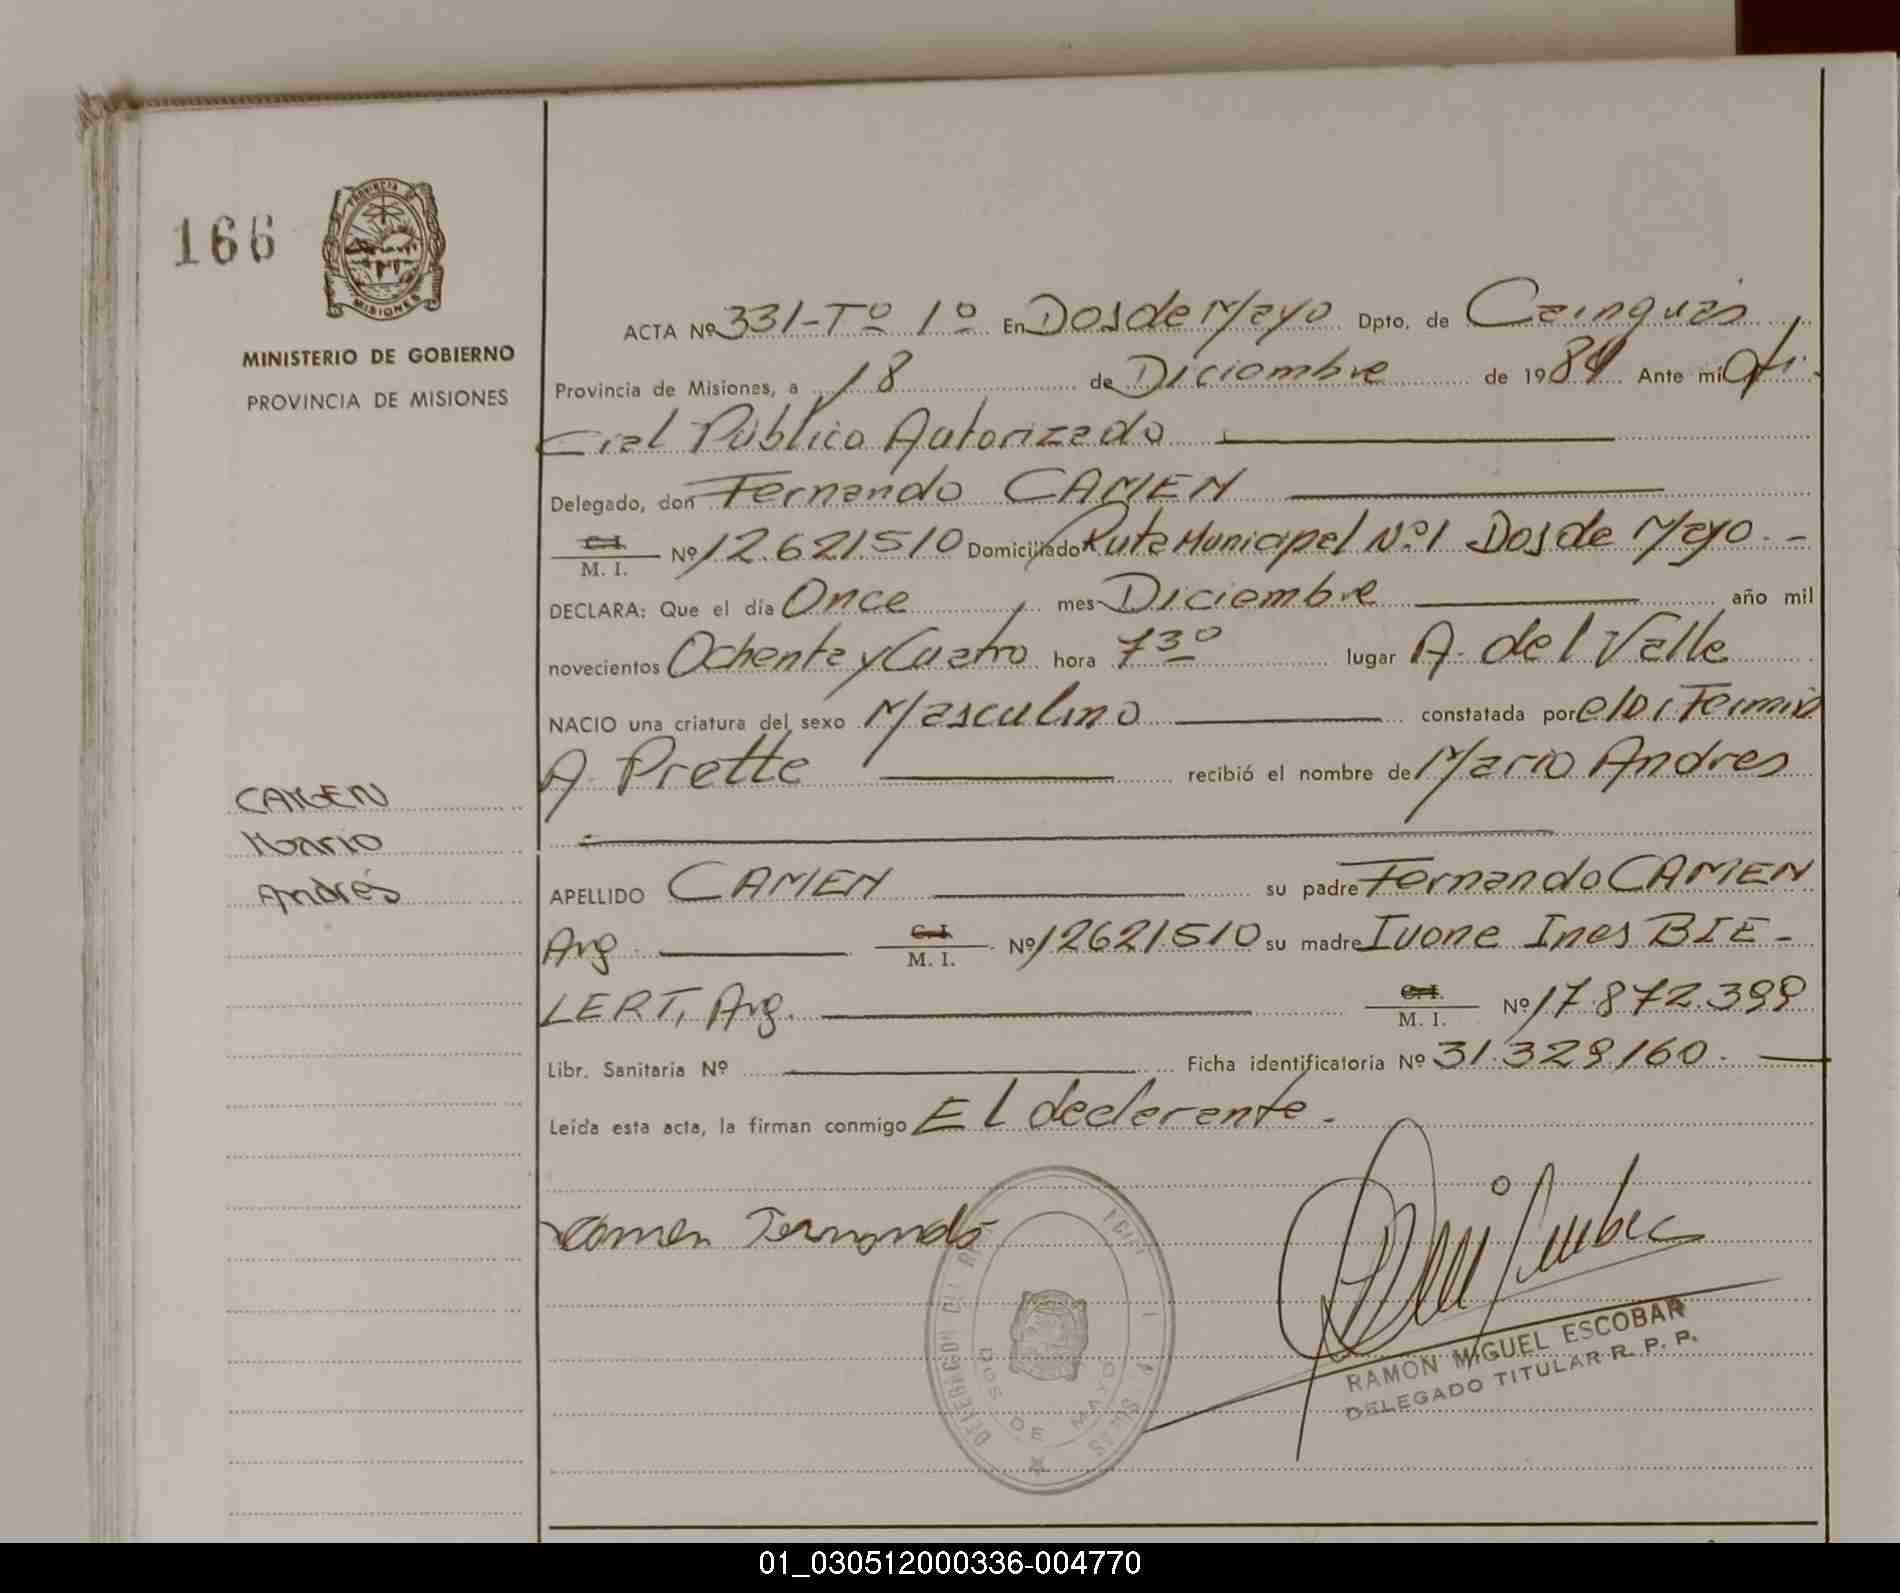 166
PROVINCIA DE
MISIONES
MINISTERIO DE GOBIERNO
PROVINCIA DE MISIONES
ACTA Nº 331-Tº 1º En Dos de Mayo Dpto. de Cainguás
Provincia de Misiones, a 18 de Diciembre de 1984 Ante mi Ofi-
cial Público Autorizado
Delegado, don Fernando CAMEN
C.I.
M. I. Nº 12.621.510 Domiciliado Ruta Municipal Nº1 Dos de Mayo.-
DECLARA: Que el día Once mes Diciembre año mil
novecientos Ochenta y Cuatro hora 7 3º lugar A. del Valle
NACIO una criatura del sexo Masculino constatada por el Dr Fermin
A. Prette recibió el nombre de Mario Andres
CAMEN
Mario
Andrés
APELLIDO CAMEN su padre Fernando CAMEN
Arg. C.I. M. I. Nº 12621.510 su madre Ivone Ines BIE-
LERT, Arg. C.I. M. I. Nº 17.872.399
Libr. Sanitaria Nº Ficha identificatoria Nº 31.329.160.
Leída esta acta, la firman conmigo El declarante.
Camen Fernando
DOS DE MAYO
RAMON MIGUEL ESCOBAR
DELEGADO TITULAR R. P. P.
01_030512000336-004770